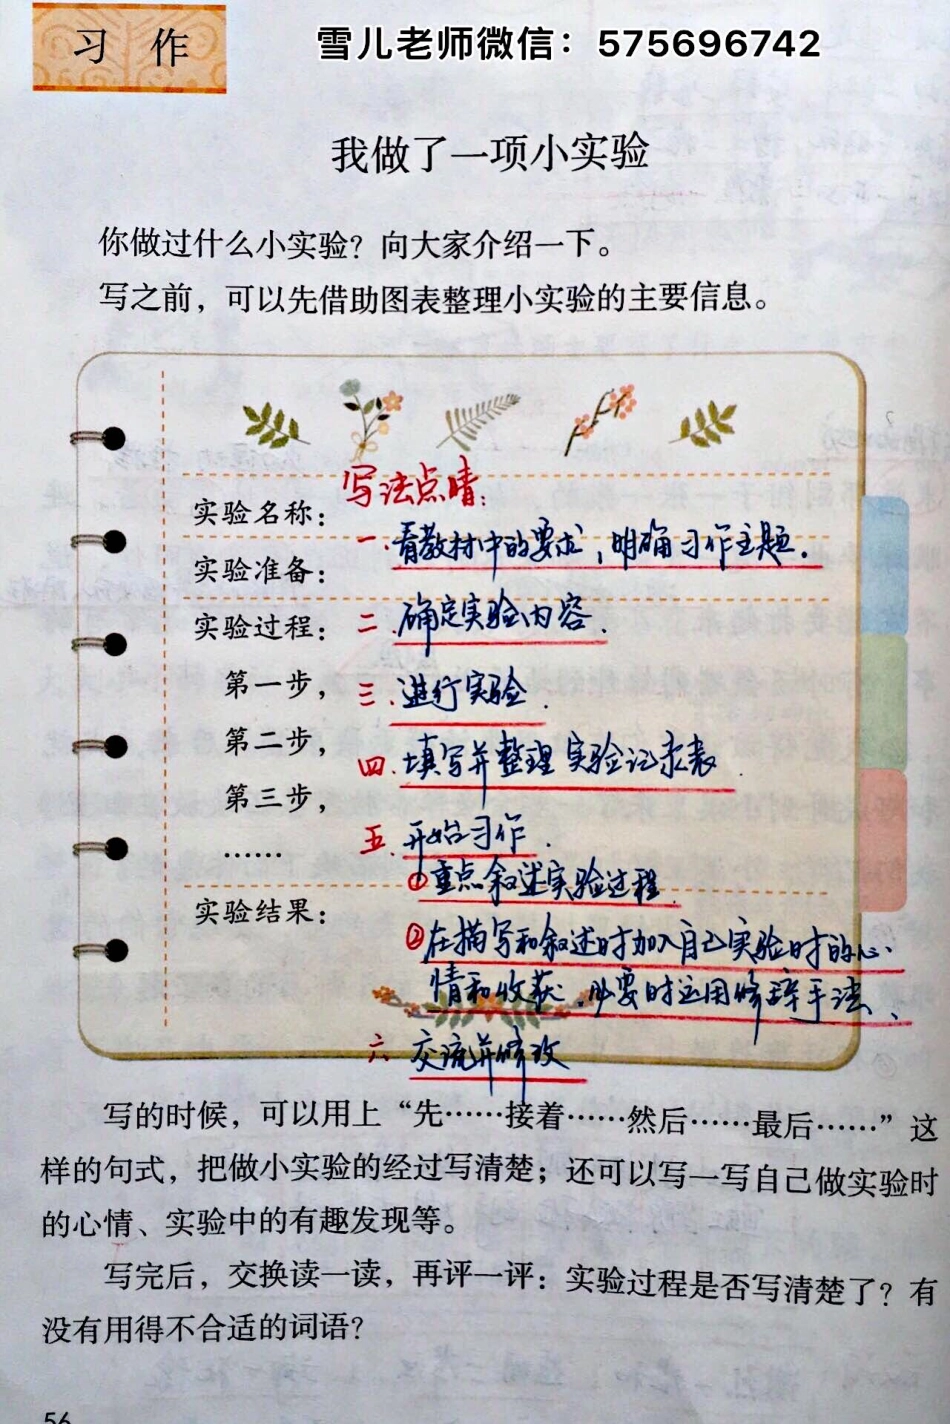 习 作
雪儿老师微信：575696742
我做了一项小实验
你做过什么小实验？向大家介绍一下。
写之前，可以先借助图表整理小实验的主要信息。
写法点睛：
实验名称：
一.看教材中的要求，明确习作主题.
实验准备：
实验过程：
二.确定实验内容.
第一步，
三.进行实验.
第二步，
四.填写并整理实验记录表.
第三步，
五.开始习作.
……
①重点叙述实验过程.
实验结果：
②在描写和叙述时加入自己实验时的心
情和收获.必要时运用修辞手法、
六.交流并修改
写的时候，可以用上“先……接着……然后……最后……”这
样的句式，把做小实验的经过写清楚；还可以写一写自己做实验时
的心情、实验中的有趣发现等。
写完后，交换读一读，再评一评：实验过程是否写清楚了？有
没有用得不合适的词语？
56